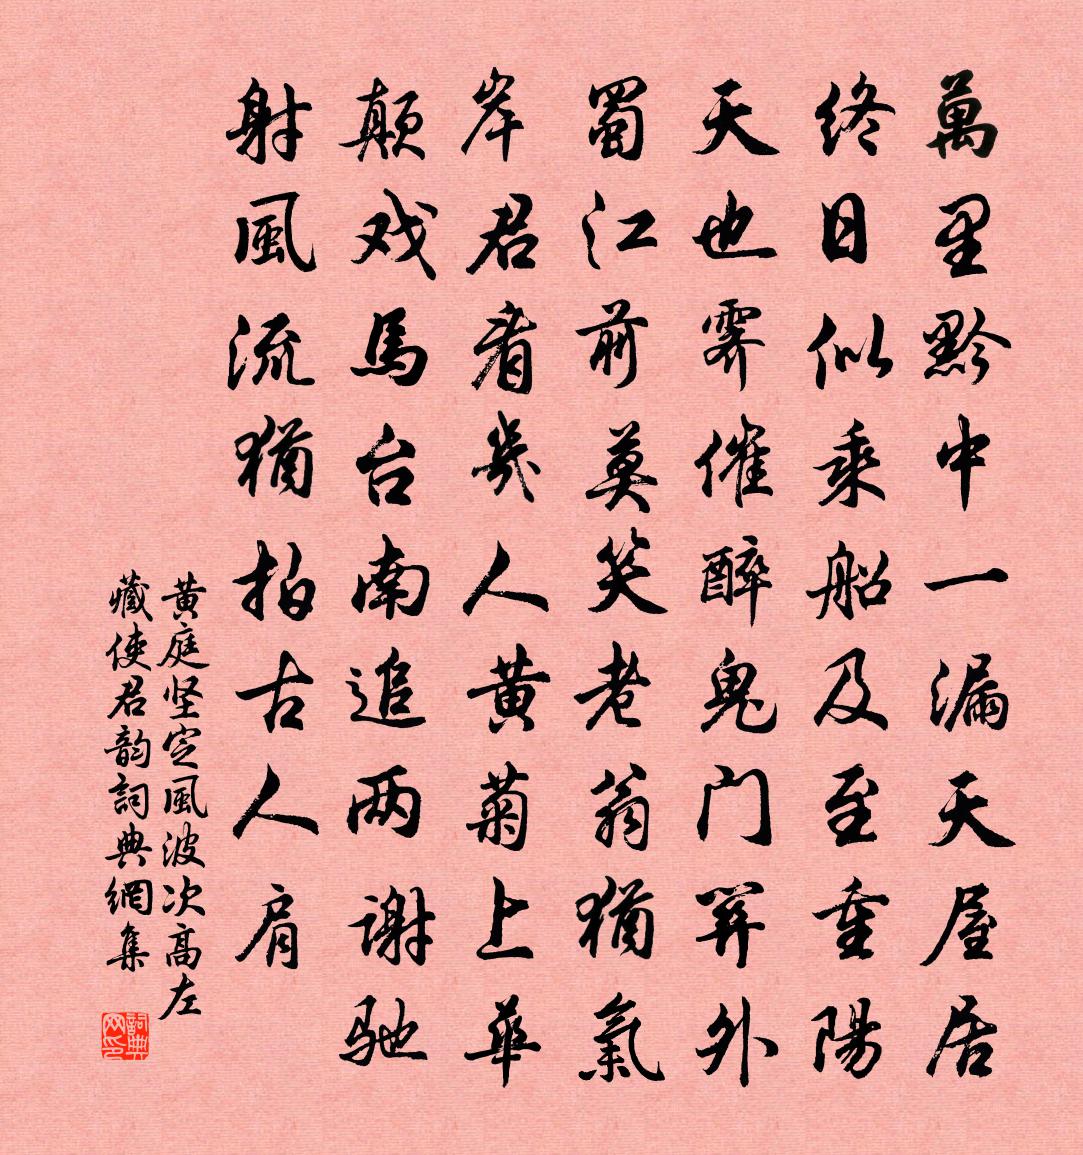 萬里黔中一漏天屋居
终日似乘船及至重陽
天也霽催醉鬼门關外
蜀江前莫笑老翁猶氣
岸君看幾人黄菊上華
颠戏馬台南追两谢驰
射風流猶拍古人肩
黄庭坚定風波次高左
藏使君韵詞典網集
詞典
网印